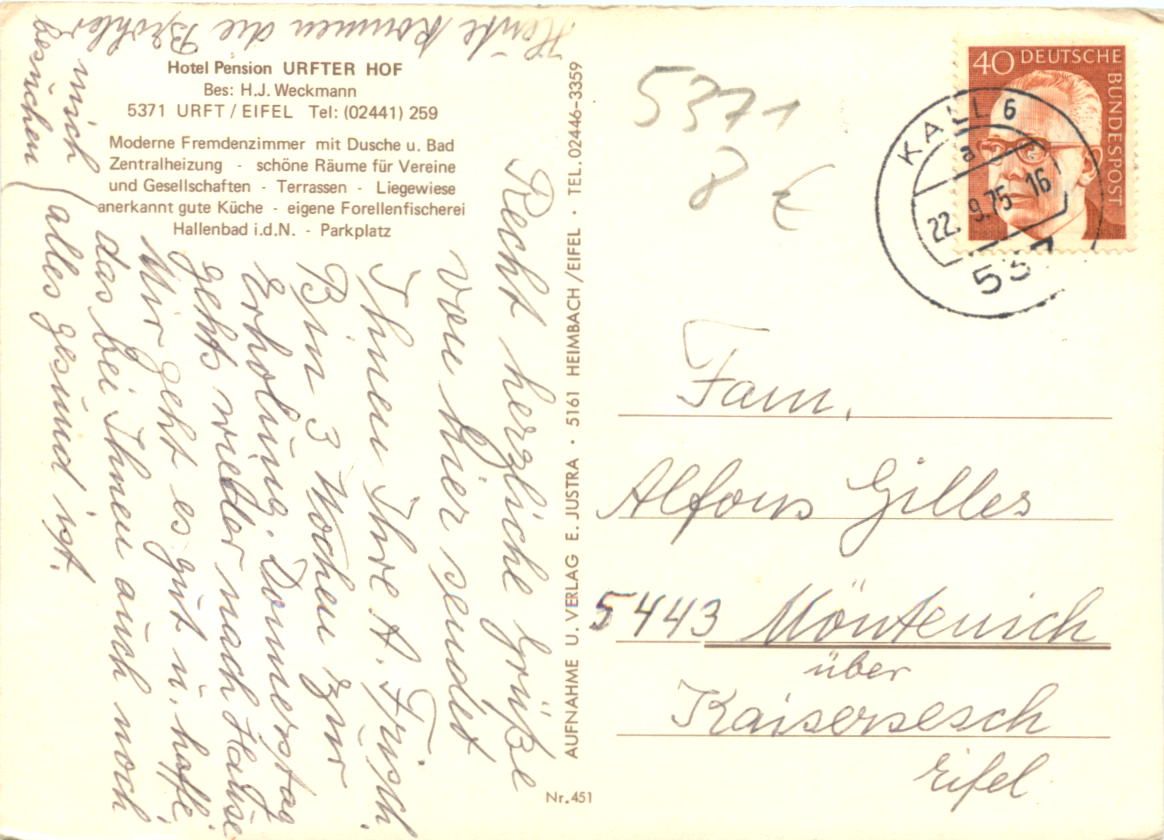 Hotel Pension URFTER HOF
Bes: H.J. Weckmann
5371 URFT / EIFEL Tel: (02441) 259
Moderne Fremdenzimmer mit Dusche u. Bad
Zentralheizung - schöne Räume für Vereine
und Gesellschaften - Terrassen - Liegewiese
anerkannt gute Küche - eigene Forellenfischerei
Hallenbad i.d.N. - Parkplatz
Recht herzliche Grüße
von hier sendet
Ihnen Ihre A. Frisch
Bin 3 Wochen zur
Erholung. Donnerstag
gehts wieder nach Hause
Mir geht es gut u. hoffe
das bei Ihnen auch noch
alles gesund ist.
Heute kommen die Brohler
mich
besuchen
AUFNAHME U. VERLAG E. JUSTRA · 5161 HEIMBACH/EIFEL · TEL. 02446-3359
Nr. 451
5371
8 €
40 DEUTSCHE
BUNDESPOST
KALL 6
a
22.9.75 16
537
Fam.
Alfons Gilles
5443 Möntenich
über
Kaisersesch
Eifel